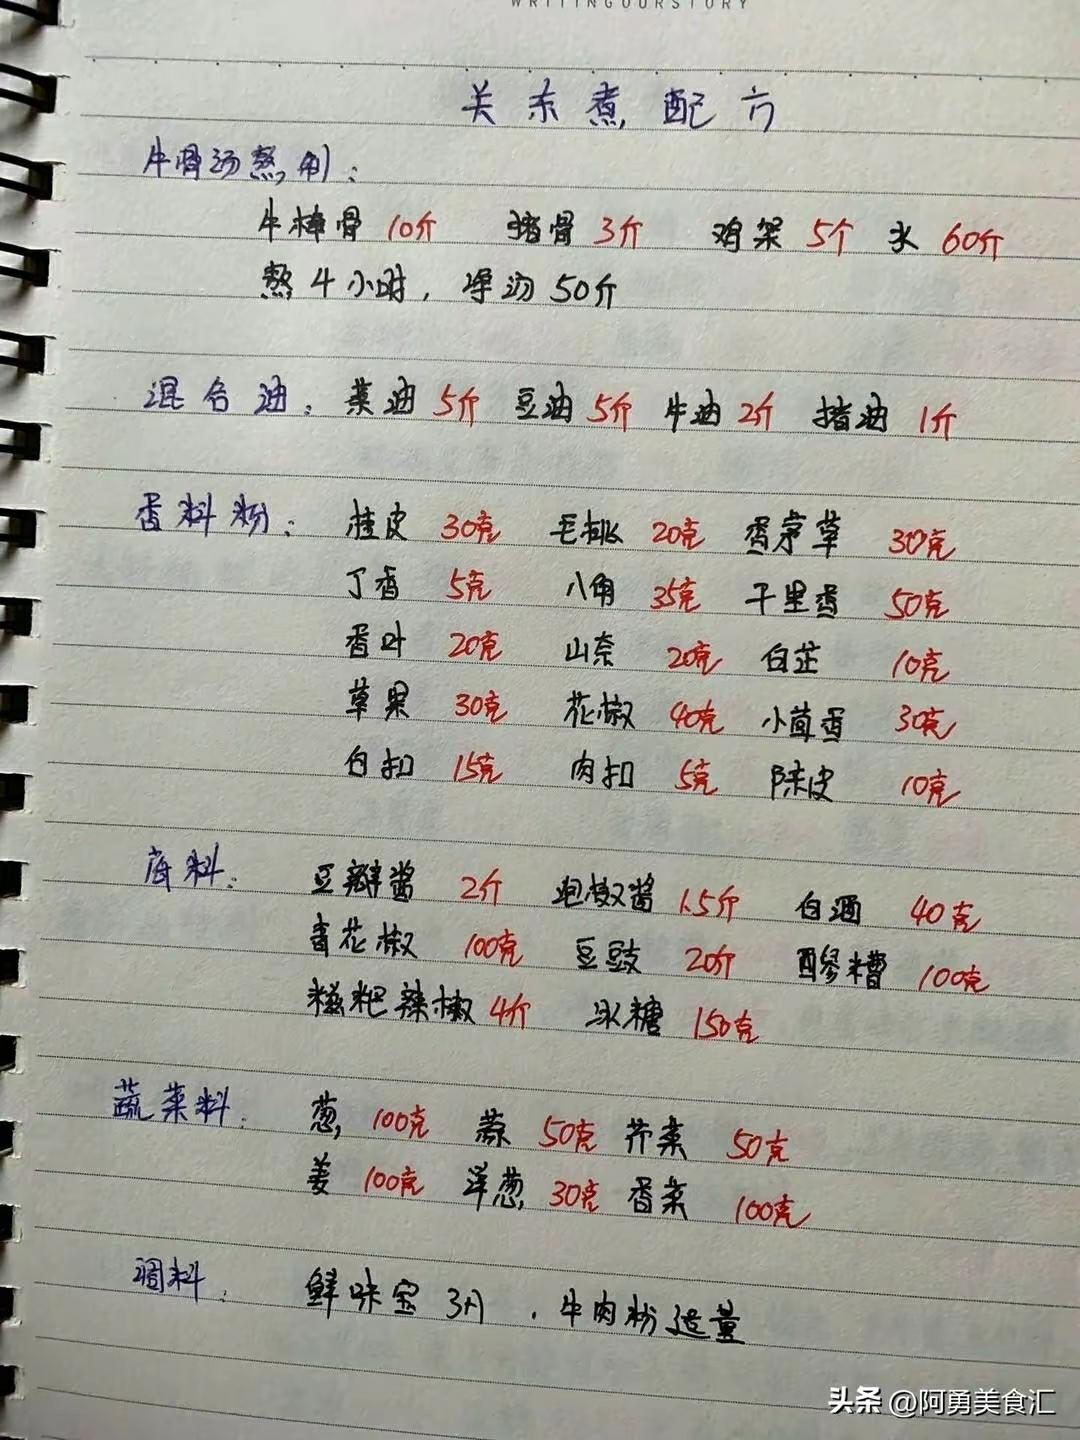 WRITINGOURSTORY
关东煮配方
牛骨汤熬制:
牛棒骨 10斤 猪骨 3斤 鸡架 5个 水 60斤
熬4小时,净汤50斤
混合油: 菜油 5斤 豆油 5斤 牛油 2斤 猪油 1斤
香料粉: 桂皮 30克 毛桃 20克 香茅草 30克
丁香 5克 八角 35克 千里香 50克
香叶 20克 山奈 20克 白芷 10克
草果 30克 花椒 40克 小茴香 30克
白扣 15克 肉扣 5克 陈皮 10克
底料: 豆瓣酱 2斤 泡椒酱 1.5斤 白酒 40克
青花椒 100克 豆豉 20斤 醪糟 100克
糍粑辣椒 4斤 冰糖 150克
蔬菜料: 葱 100克 蒜 50克 芹菜 50克
姜 100克 洋葱 30克 香菜 100克
调料: 鲜味宝 3斤,牛肉粉适量
头条 @阿勇美食汇